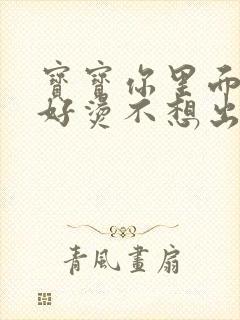 寶寶你里面
好燙不想出
青風畫扇